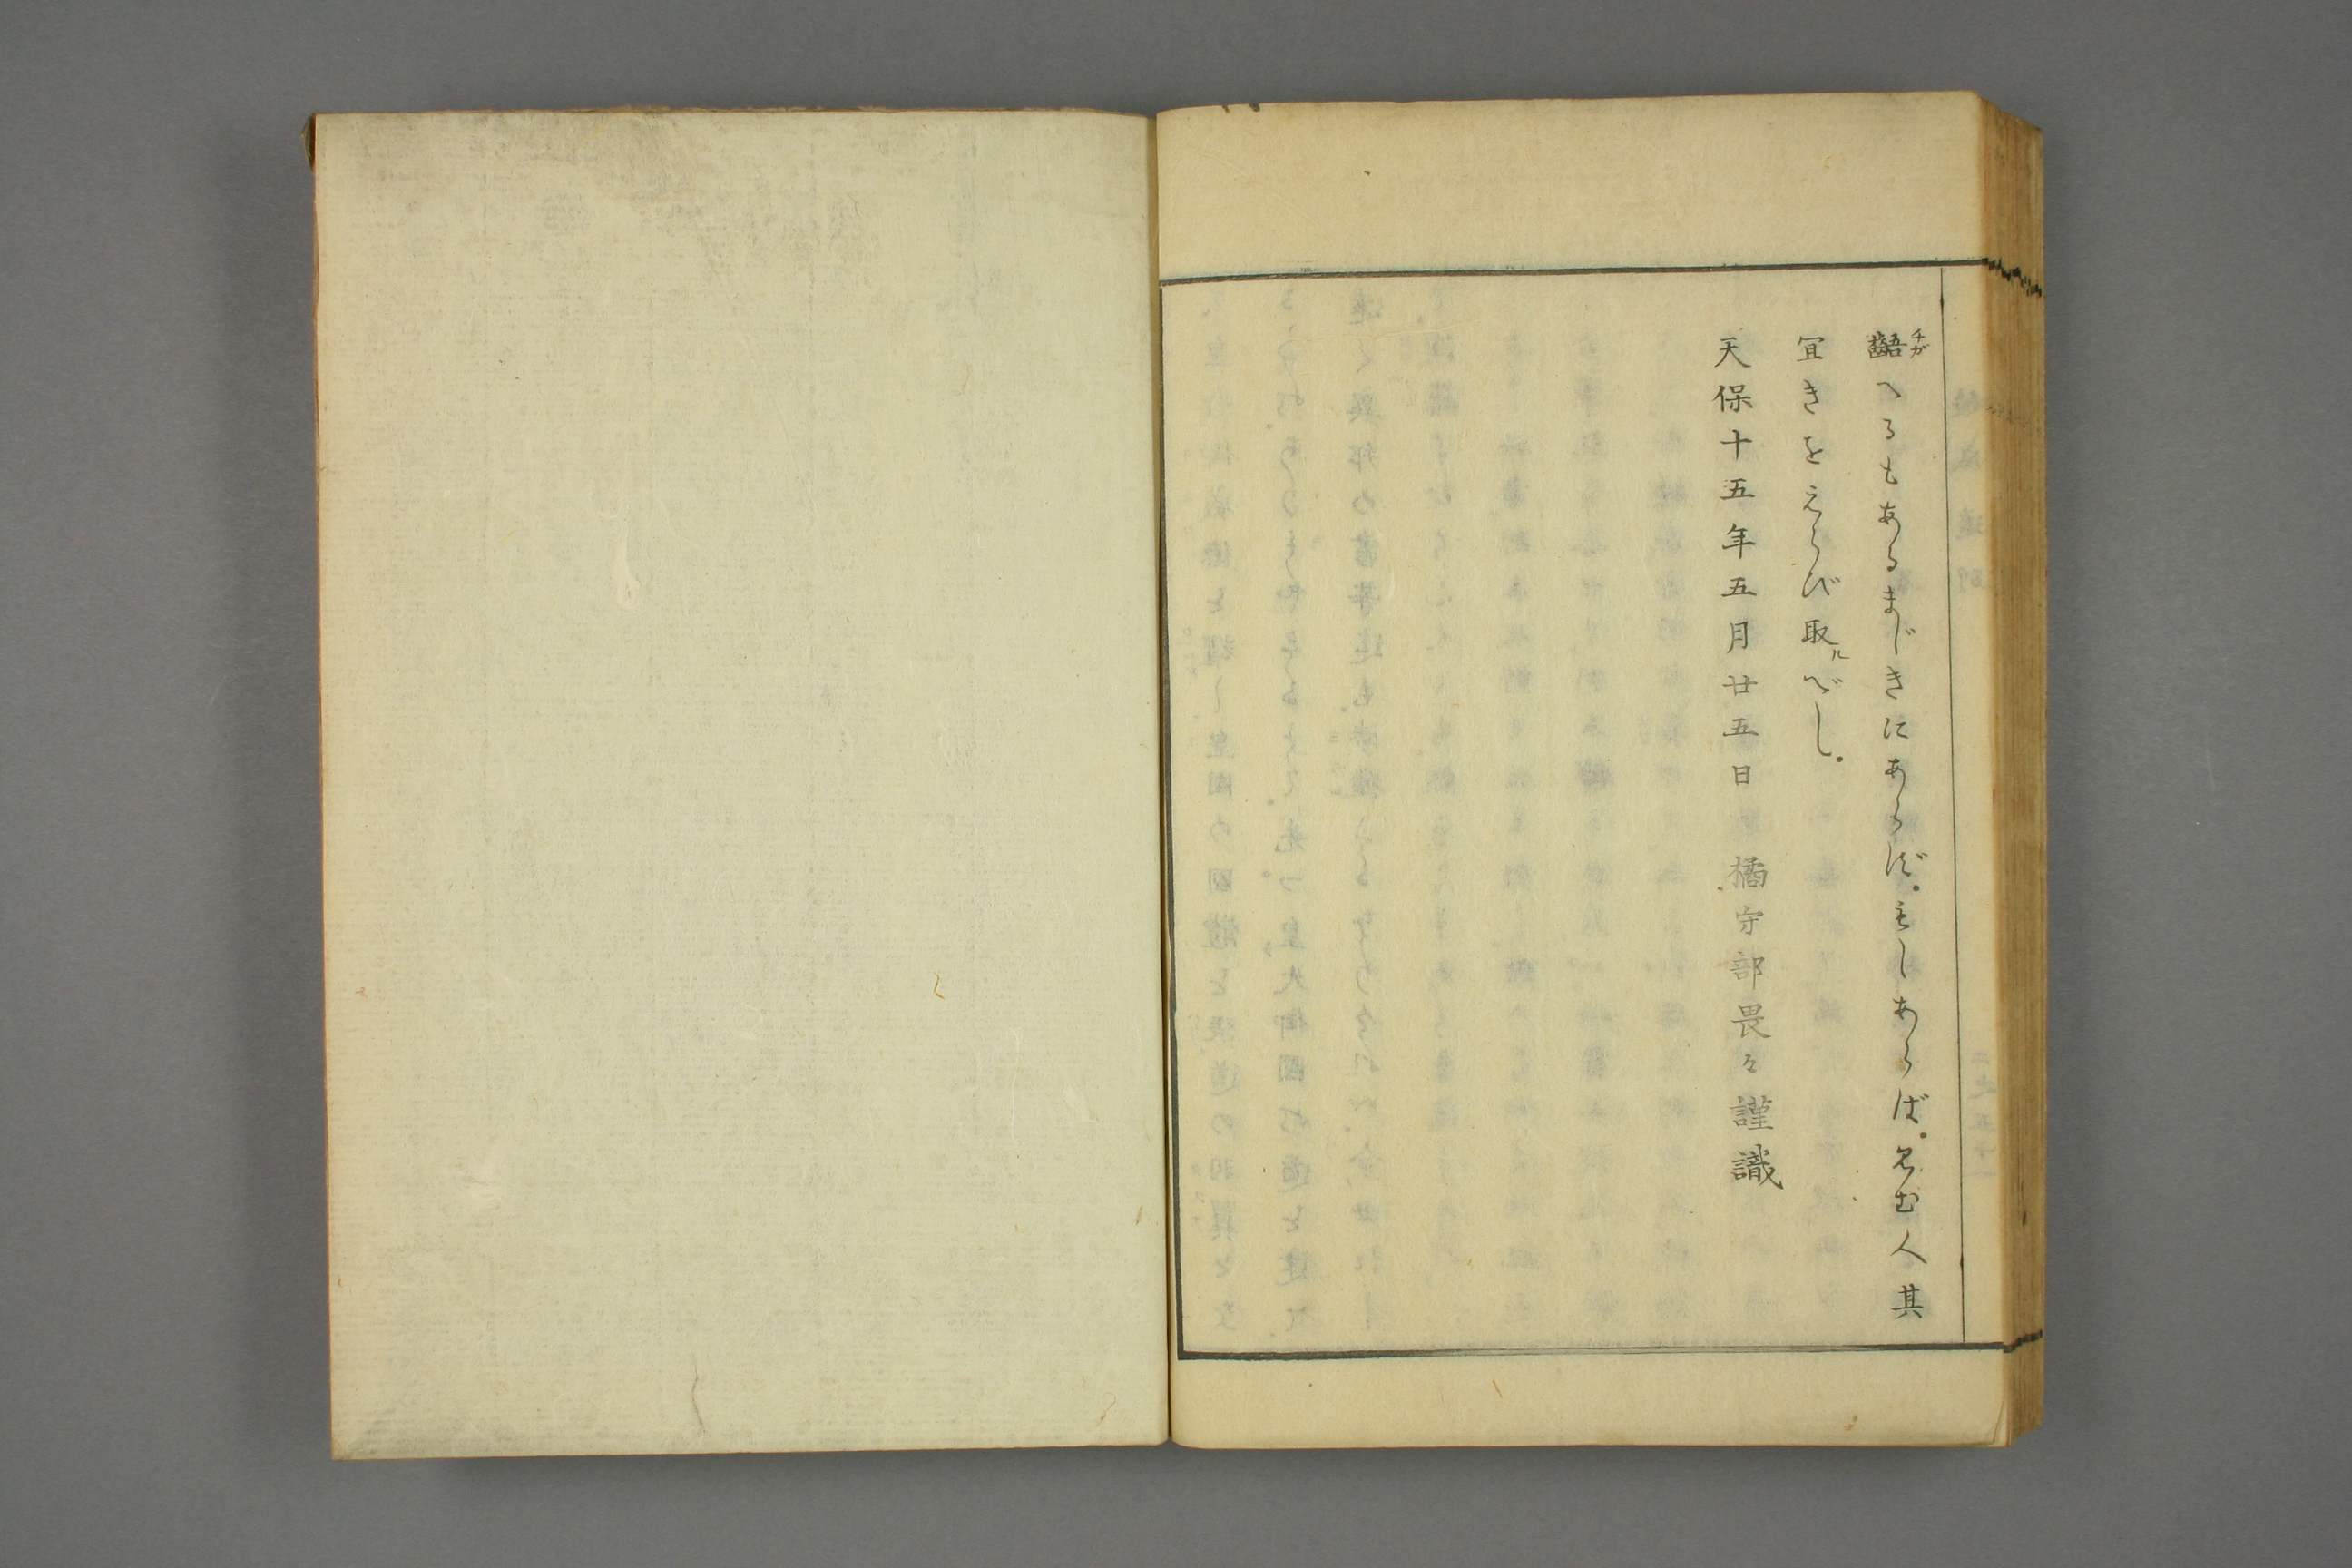 齬へるもあるまじきにあらず。もしあらば。見む人其
宜きをえらび取ルべし。
天保十五年五月廿五日　橘守部畏々謹識